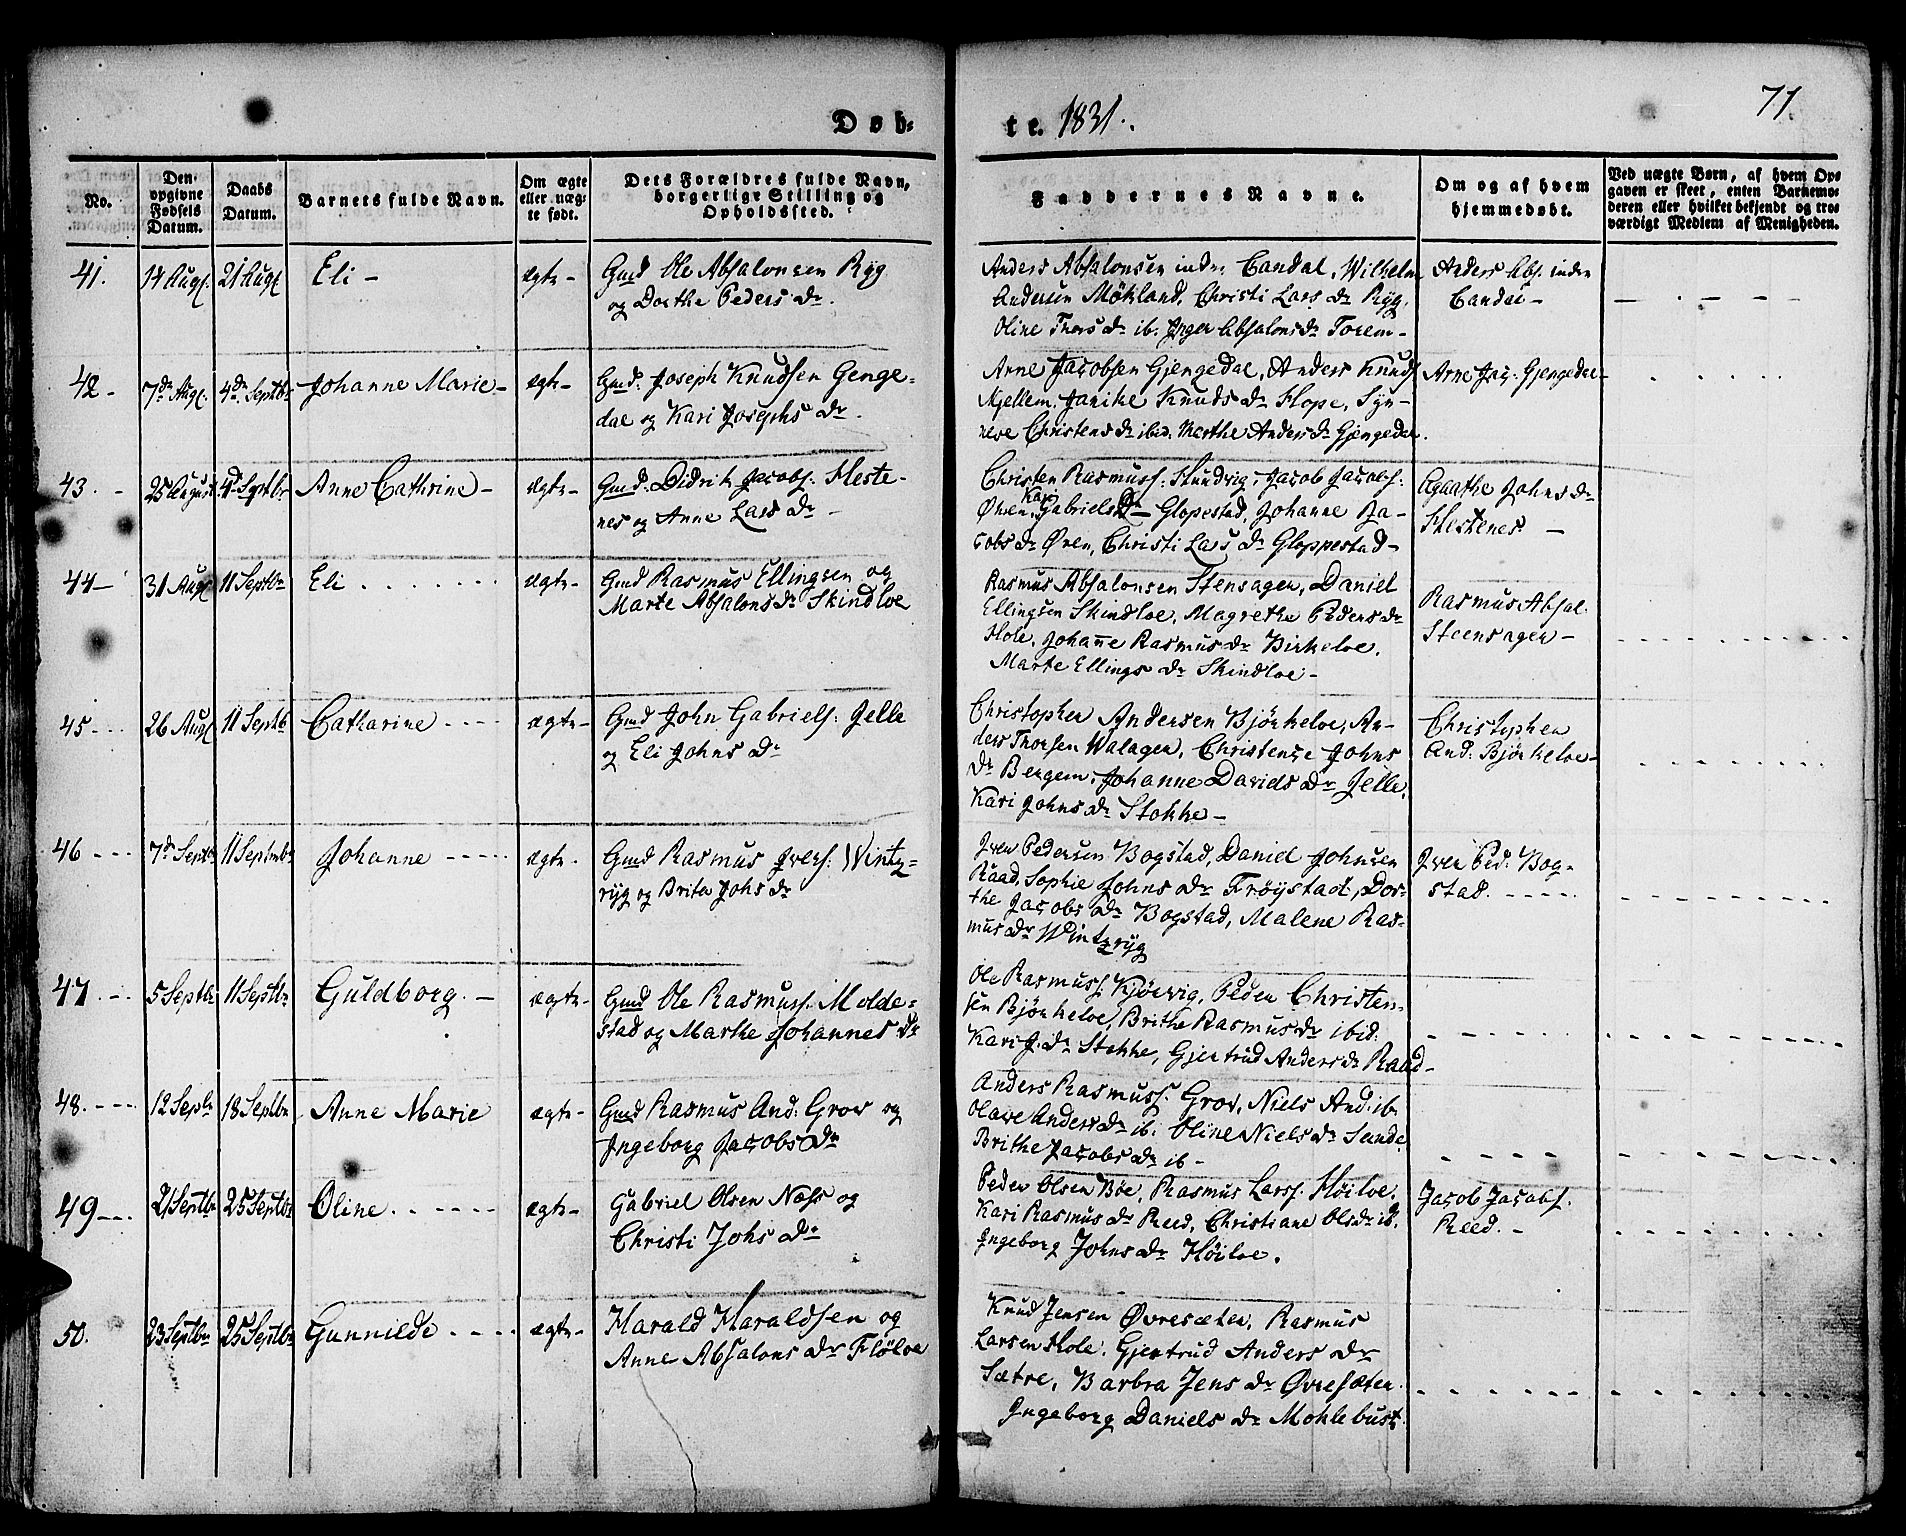 Døb-
te. 1831.
71.
No.
Den opgivne Fødsels Datum.
Daabs Datum.
Barnets fulde Navn.
Om ægte eller uægte født.
Dets Forældres fulde Navn, borgerlige Stilling og Opholdssted.
Faddernes Navne.
Om og af hvem hjemmedøbt.
Ved uægte Børn, af hvem Opgaven er skeet, enten Barnemoderen eller hvilket bekjendt og troværdigt Medlem af Menigheden.
41. 14 Aug. 21 Aug. Eli - ægte -
Gmd Ole Absalonsen Ryg
og Dorthe Peders Dr.
Anders Absalonsen indre Candal, Wilhelm
Andersen Møkland, Christi Lars Dr Ryg,
Oline Thors Dr ib. Inger Absalons Dr Torem -
Anders Abs. indre
Candal -
42 - 7de Aug. 4de Septbr Johanne Marie - ægte -
Gmd: Joseph Knudsen Genge-
dal og Kari Josephs Dr -.
Arne Jacobsen Gjengedal, Anders Knuds
Mjellem, Janike Knuds Dr Hope, Syn-
neve Christens Dr ibid. Marthe Anders Dr Gjengedal.
Arne Jac. Gjengedal -
43. - 25 August 4de Septbr Anne Cathrine - ægte -
Gmd: Didrik Jacobs. Heste-
nes og Anne Lars Dr -
Christen Rasmuss. Hundvig, Jacob Jacobs.
Øren, Kari Gabriels Dr - Glopestad, Johanne Ja-
cobs Dr Øren, Christi Lars Dr Gloppestad -
Agaathe Johns Dr
Hestenes -
44 - 31 Aug. 11 Septbr Eli . . . . . . ægte -
Gmd Rasmus Ellingsen og
Marte Absalons Dr Skindloe
Rasmus Absalonsen Stensager, Daniel
Ellingsen Skindloe, Magrethe Peders Dr
Hole, Johanne Rasmus Dr Birkeloe,
Marte Ellings Dr Skindloe -
Rasmus Absal.
Steensager -
45 - - - 26 Aug. 11 Septb Catharine - - - - ægte -
Gmd John Gabriels. Jelle
og Eli Johns Dr
Christopher Andersen Bjørkeloe, An-
ders Thorsen Walager, Christense Johns
Dr Bergem, Johanne Davids Dr Jelle,
Kari Johns Dr Stokke -
Christopher
And: Bjørkeloe -
46 - - - 7de Septbr 11 Septmbr Johanne - - - - - ægte -
Gmd Rasmus Ivers. Wintz-
ryg og Brita Johs Dr
Iver Pedersen Bogstad, Daniel Johnsen
Raad, Sophie Johns Dr Frøystad, Dor-
the Jacobs Dr Bogstad, Malene Ras-
mus Dr Wintzryg
Iver Ped: Bog-
stad. - - - - -
47 - - - 5 Septbr 11 Septbr Guldborg. - ægte -
Gmd Ole Rasmuss. Molde-
stad og Marthe Johannes Dr
Ole Rasmuss. Kjørvig, Peder Christen-
sen Bjørkeloe, Brithe Rasmus Dr ibid.
Kari J. Dr Stokke, Gjertrud Anders Dr Raad -
48. - - - 12 Septbr 18 Septbr Anne Marie ægte -
Gmd Rasmus And: Grov og
Ingeborg Jacobs Dr
Anders Rasmuss. Grov, Niels And. ib.
Olave Anders Dr ib. Oline Niels Dr Sunde,
Brithe Jacobs Dr ib -
49 - - - 21 Septbr 25 Septbr Oline. . - - - - - ægte -
Gabriel Olsen Næss og
Christi Johs Dr
Peder Olsen Bøe, Rasmus Larss. Høiloe,
Kari Rasmus Dr Reed, Christiane Ols Dr ib,
Ingeborg Johns Dr Høiloe.
Jacob Jacobs.
Reed. -
50. 23 Septbr 25 Septbr Gunnilde . - - - ægte -
Harald Haraldsen og
Anne Absalons Dr Fløloe
Knud Jensen Øvresæter, Rasmus
Larsen Hole, Gjertrud Anders Dr
Sætre, Barbra Jens Dr Øvresæter
Ingeborg Daniels Dr Moklebust.